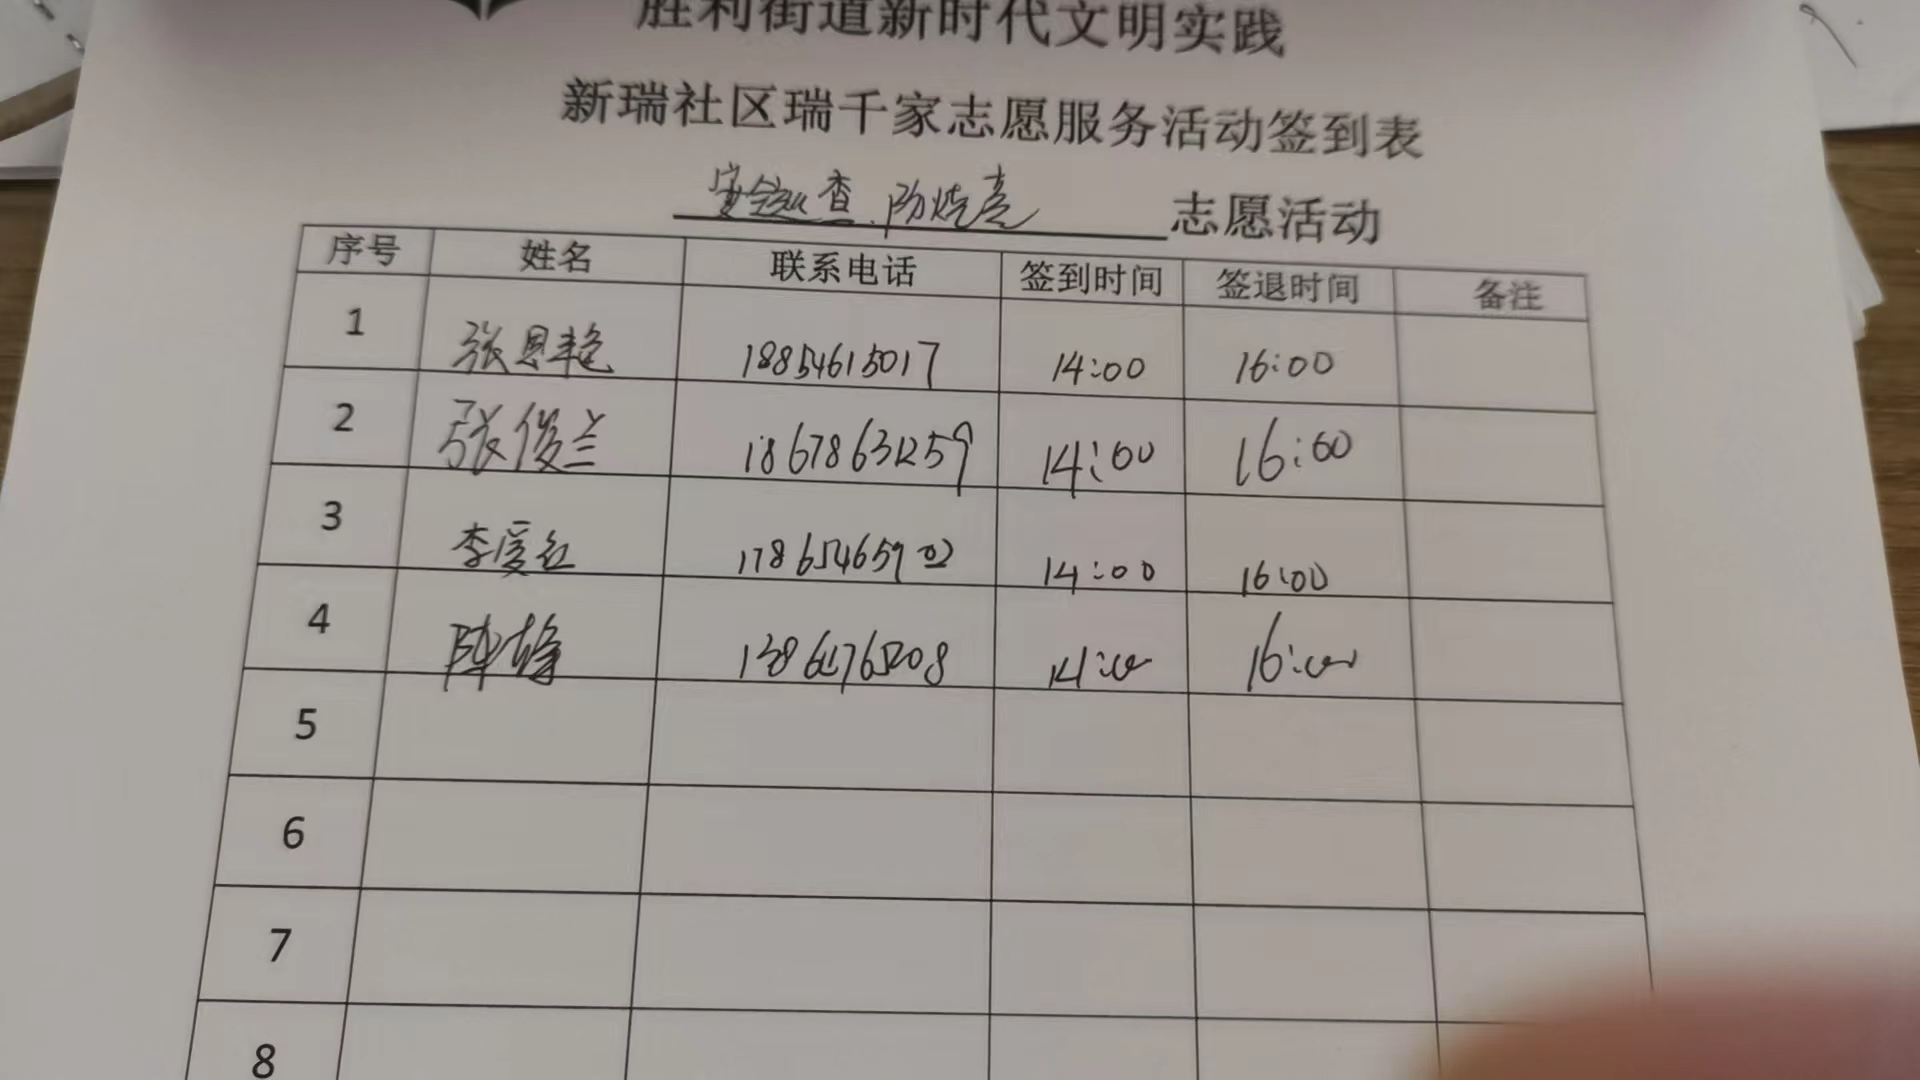 胜利街道新时代文明实践
新瑞社区瑞千家志愿服务活动签到表
安全巡查、防烧意 志愿活动
序号 姓名 联系电话 签到时间 签退时间 备注
1 张恩艳 18854615017 14:00 16:00
2 张俊兰 18678631259 14:00 16:00
3 李爱红 17865465902 14:00 16:00
4 14:00 16:00
5
6
7
8